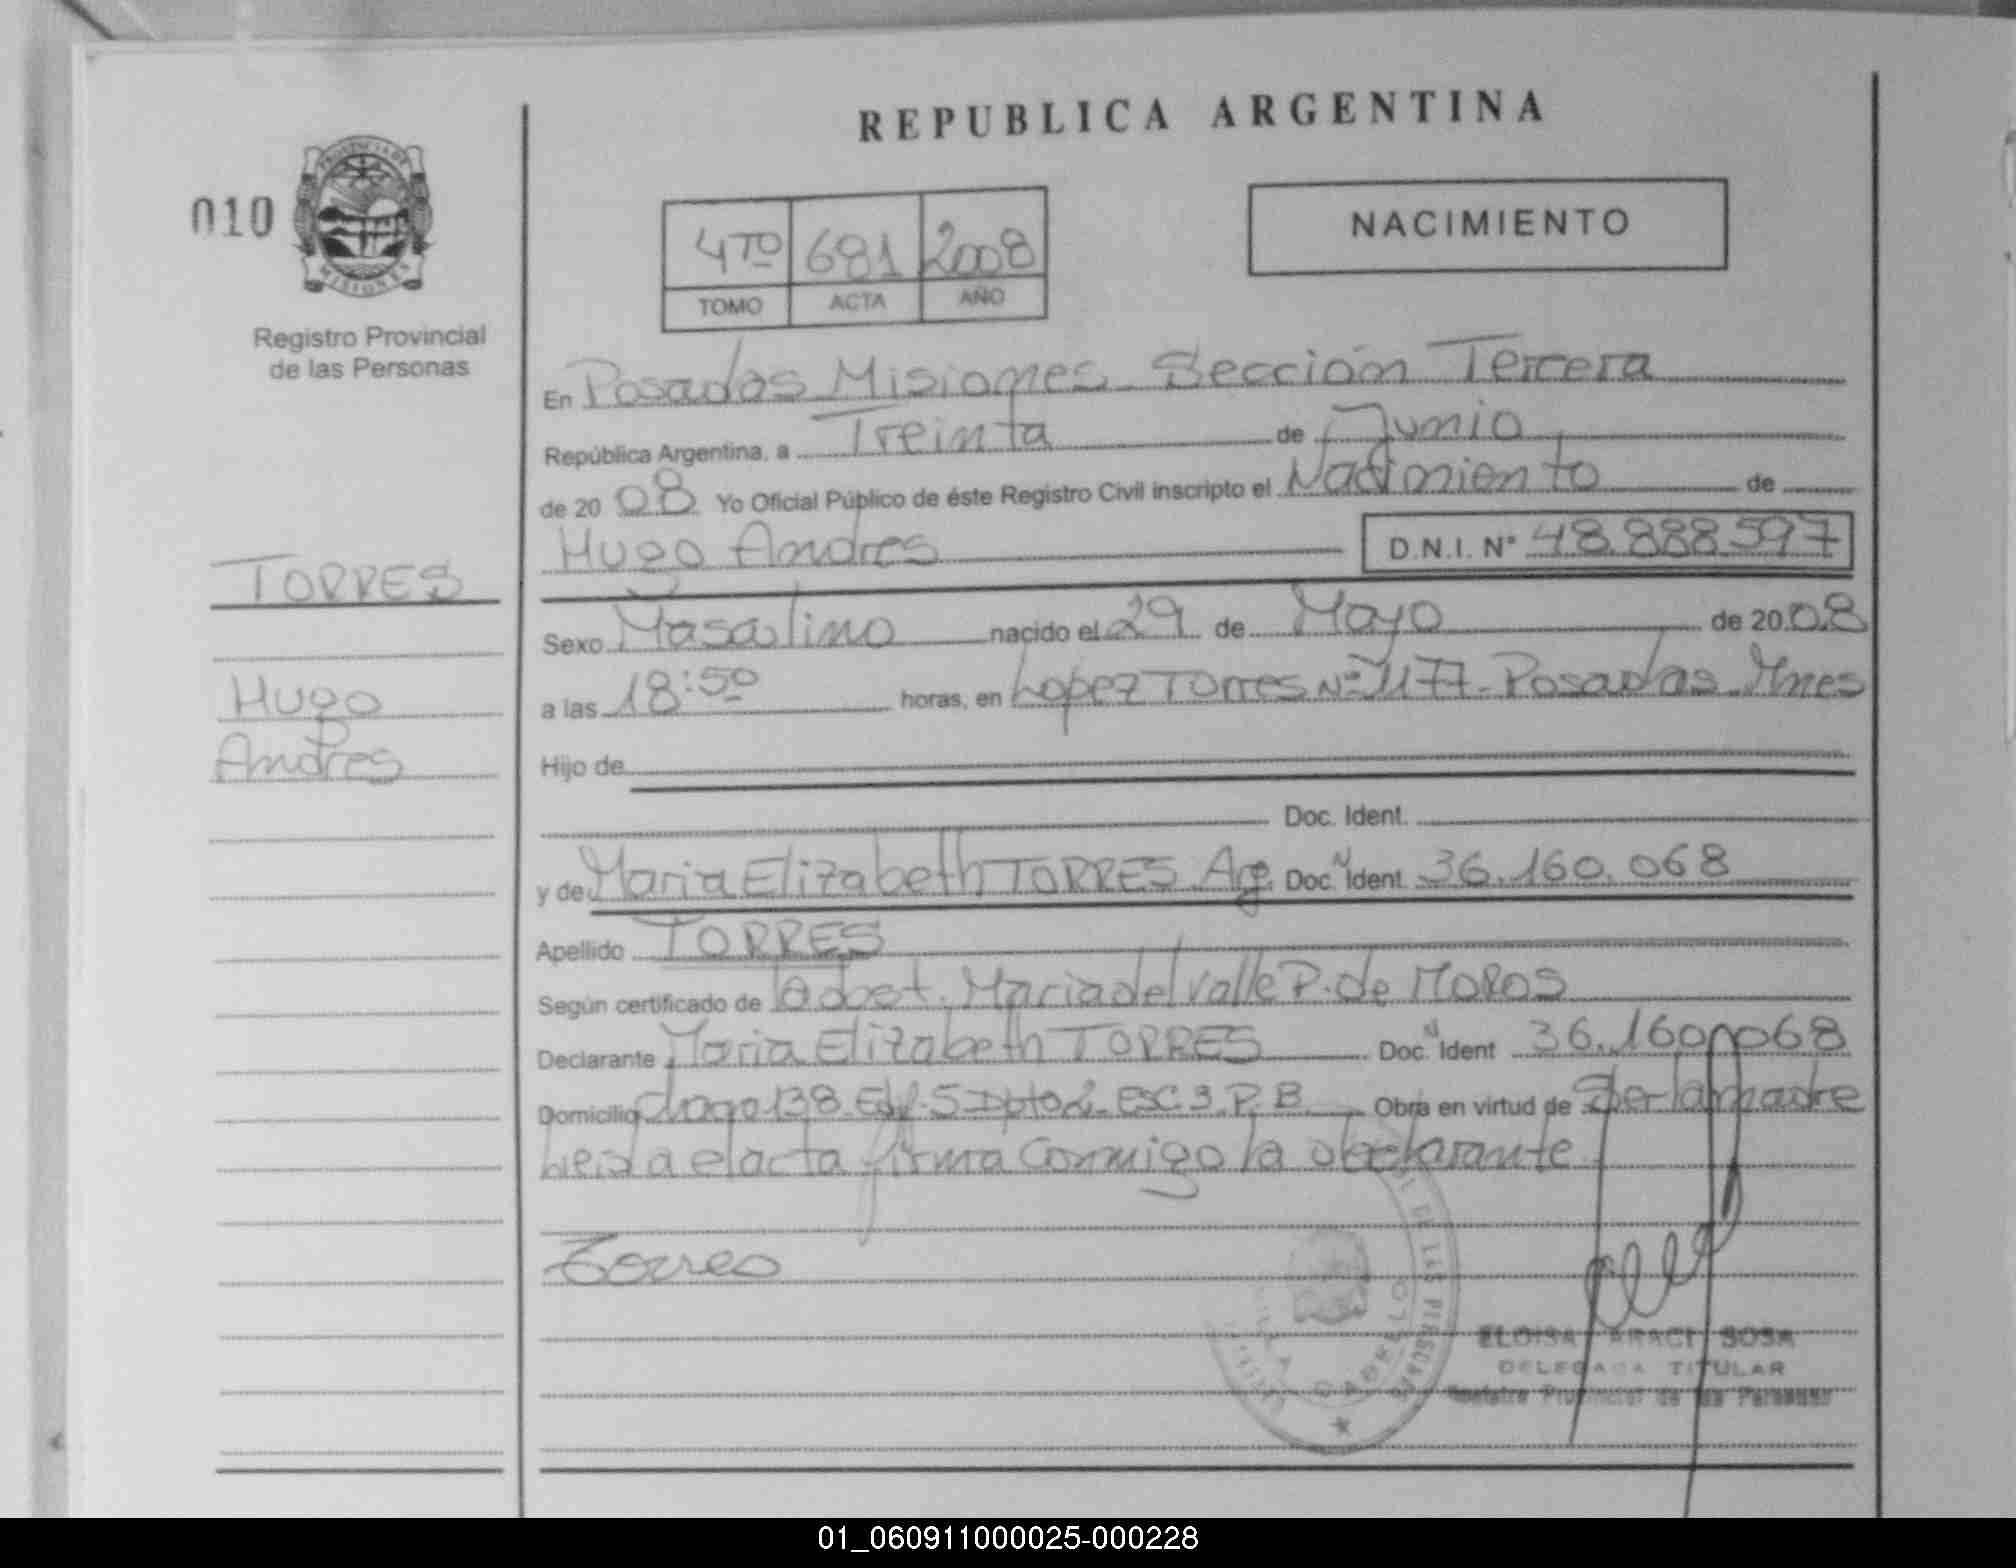 REPUBLICA ARGENTINA
010
PROVINCIA DE
MISIONES
Registro Provincial
de las Personas
NACIMIENTO
4TO 681 2008
TOMO ACTA AÑO
En Posadas Misiones. Sección Tercera
República Argentina, a Treinta de Junio
de 20 08 Yo Oficial Público de éste Registro Civil inscripto el Nacimiento de
Hugo Andres D.N.I. N° 48.888.597
TORRES
Hugo
Andres
Sexo Masculino nacido el 29 de Mayo de 20 08
a las 18:50 horas, en Lopez Torres Nº 1177. Posadas Mnes
Hijo de
Doc. Ident.
y de Maria Elizabeth TORRES Arg. Doc. N Ident. 36.160.068
Apellido TORRES
Según certificado de la obst. Maria del Valle P. de MOROS
Declarante Maria Elizabeth TORRES Doc. N Ident 36.160.068
Domicilio 138 Edf. 5 Dpto 2 esc 3 P.B. Obra en virtud de Ser la madre
Leida el acta firma conmigo la declarante
Torres
DE LAS PERSONAS
CABRELO
ELOISA ARACI SOSA
DELEGADA TITULAR
Registro Provincial de las Personas
01_060911000025-000228